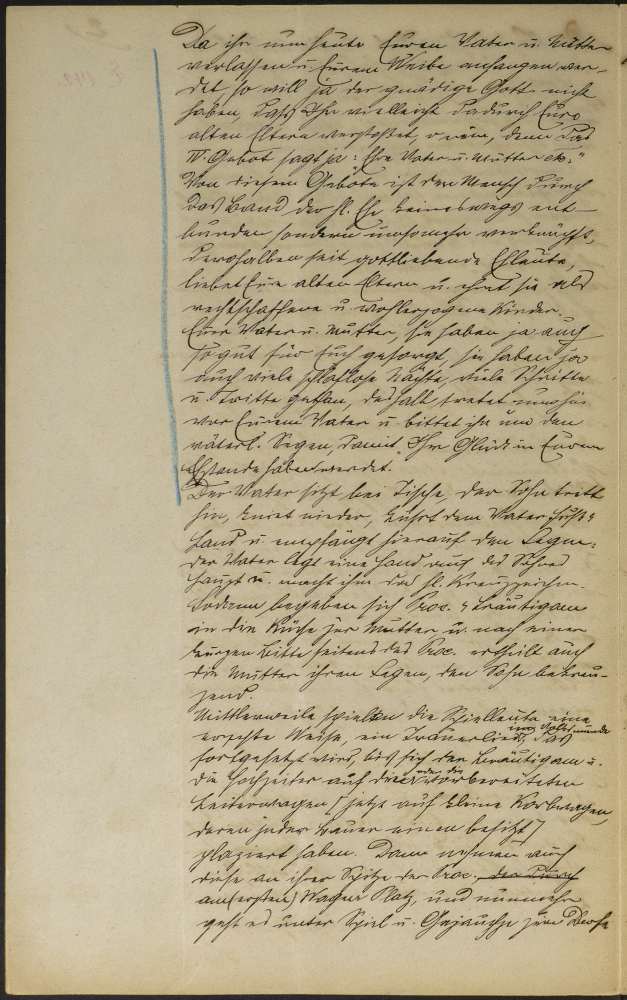 Da ihr nun heute Euren Vater u. Mutter
verlassen u. Eurem Weibe anhangen wer-
det, so will ja der gnädige Gott nicht
haben, dass Ihr vielleicht dadurch Eure
alten Eltern verstoßet, o nein, denn das
IV. Gebot sagt ja: "Ehre Vater u. Mutter etc."
Von diesem Gebote ist der Mensch durch
das Band der hl. Ehe keineswegs ent-
bunden sondern umsomehr verknüpft,
deroshalben seit gottliebende Eheleute,
liebet Eure alten Eltern u. ehret sie als
rechtschaffene u. wohlerzogene Kinder.
Euer Vater u. Mutter, sie haben ja auch
so gut für Euch gesorgt, sie haben ja
auch viele schlaflose Nächte, viele Schritte
u. Tritte gethan, deshalb tretet nun hin
vor Eurem Vater u. bittet ihn um den
väterl. Segen, damit Ihr Glück in Eurem
Ehstande haben werdet."
Der Vater sitzt bei Tische, der Sohn tritt
hin, kniet nieder, küsst dem Vater Fuß &
Hand u. empfängt hierauf den Segen.
der Vater legt eine Hand auf des Sohnes
Haupt u. macht ihm das hl. Kreuzzeichen.
Sodann begeben sich Proc. & Bräutigam
in die Küche zur Mutter u. nach einer
kurzen Bitte seitens des Proc. ertheilt auch
die Mutter ihren Segen, den Sohn bekreu-
zend.
Mittlerweile spielten die Spielleute eine
ernste Weise, ein Trauerlied, das
fortgesetzt wird, bis sich der Bräutigam u.
die Hochzeiter auf die vorbereiteten
Leiterwagen [jetzt auf kleine Korbwagen,
deren jeder Bauer einen besitzt]
plaziert haben. Dann nehmen auch
diese an ihrer Spitze der Proc.
am (ersten) Wagen Platz, und nunmehr
geht es unter Spiel u. Gejauchze zum